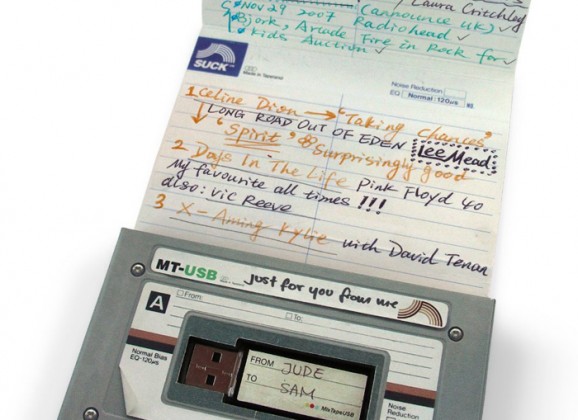 Laura Critchley
Nov 29 2007 (announce uk) ✓
Bjork, Arcade Fire in Rock for ✓
Kids Auction ✓
Radiohead ✓
SUCK
Made in Taiwan
Noise Reduction
EQ Normal: 120μs
1 Celine Dion → "Taking Chances"
LONG ROAD OUT OF EDEN
"Spirit" Surprisingly good
Lee Mead
2 Days In The Life Pink Floyd 40
My favourite all times !!!
also: Vic Reeve
3 X-Aming Kylie with David Tenan
MT-USB
Just for you from me
A
From:
To:
Normal Bias
EQ-120μs
FROM JUDE
TO SAM
MixTapeUSB
Noise
Reduction